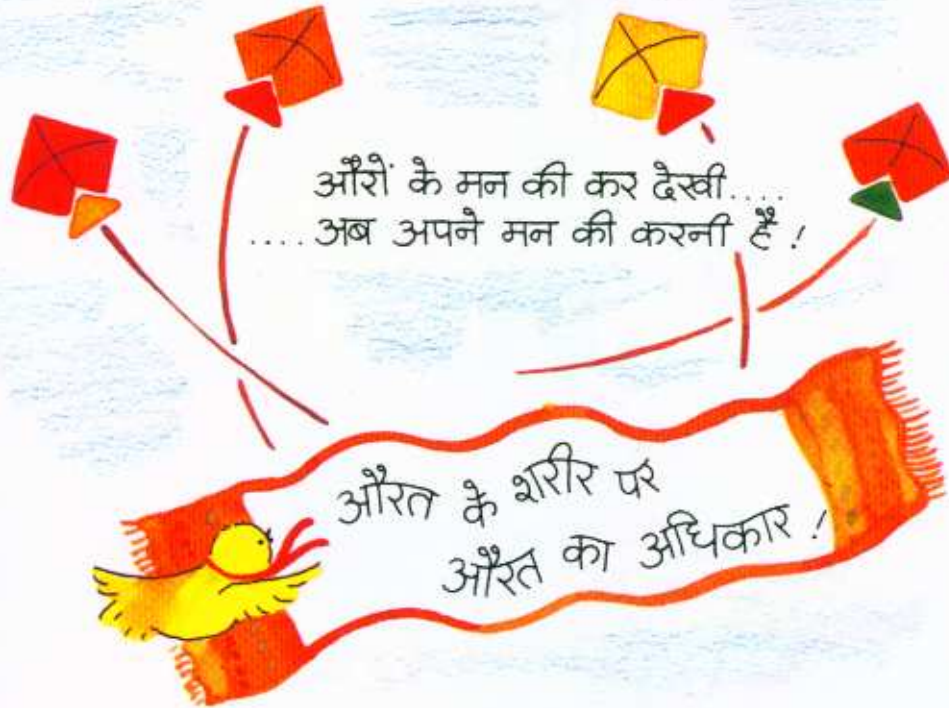 औरों के मन की कर देखी....
.... अब अपने मन की करनी है !
औरत के शरीर पर
औरत का अधिकार !